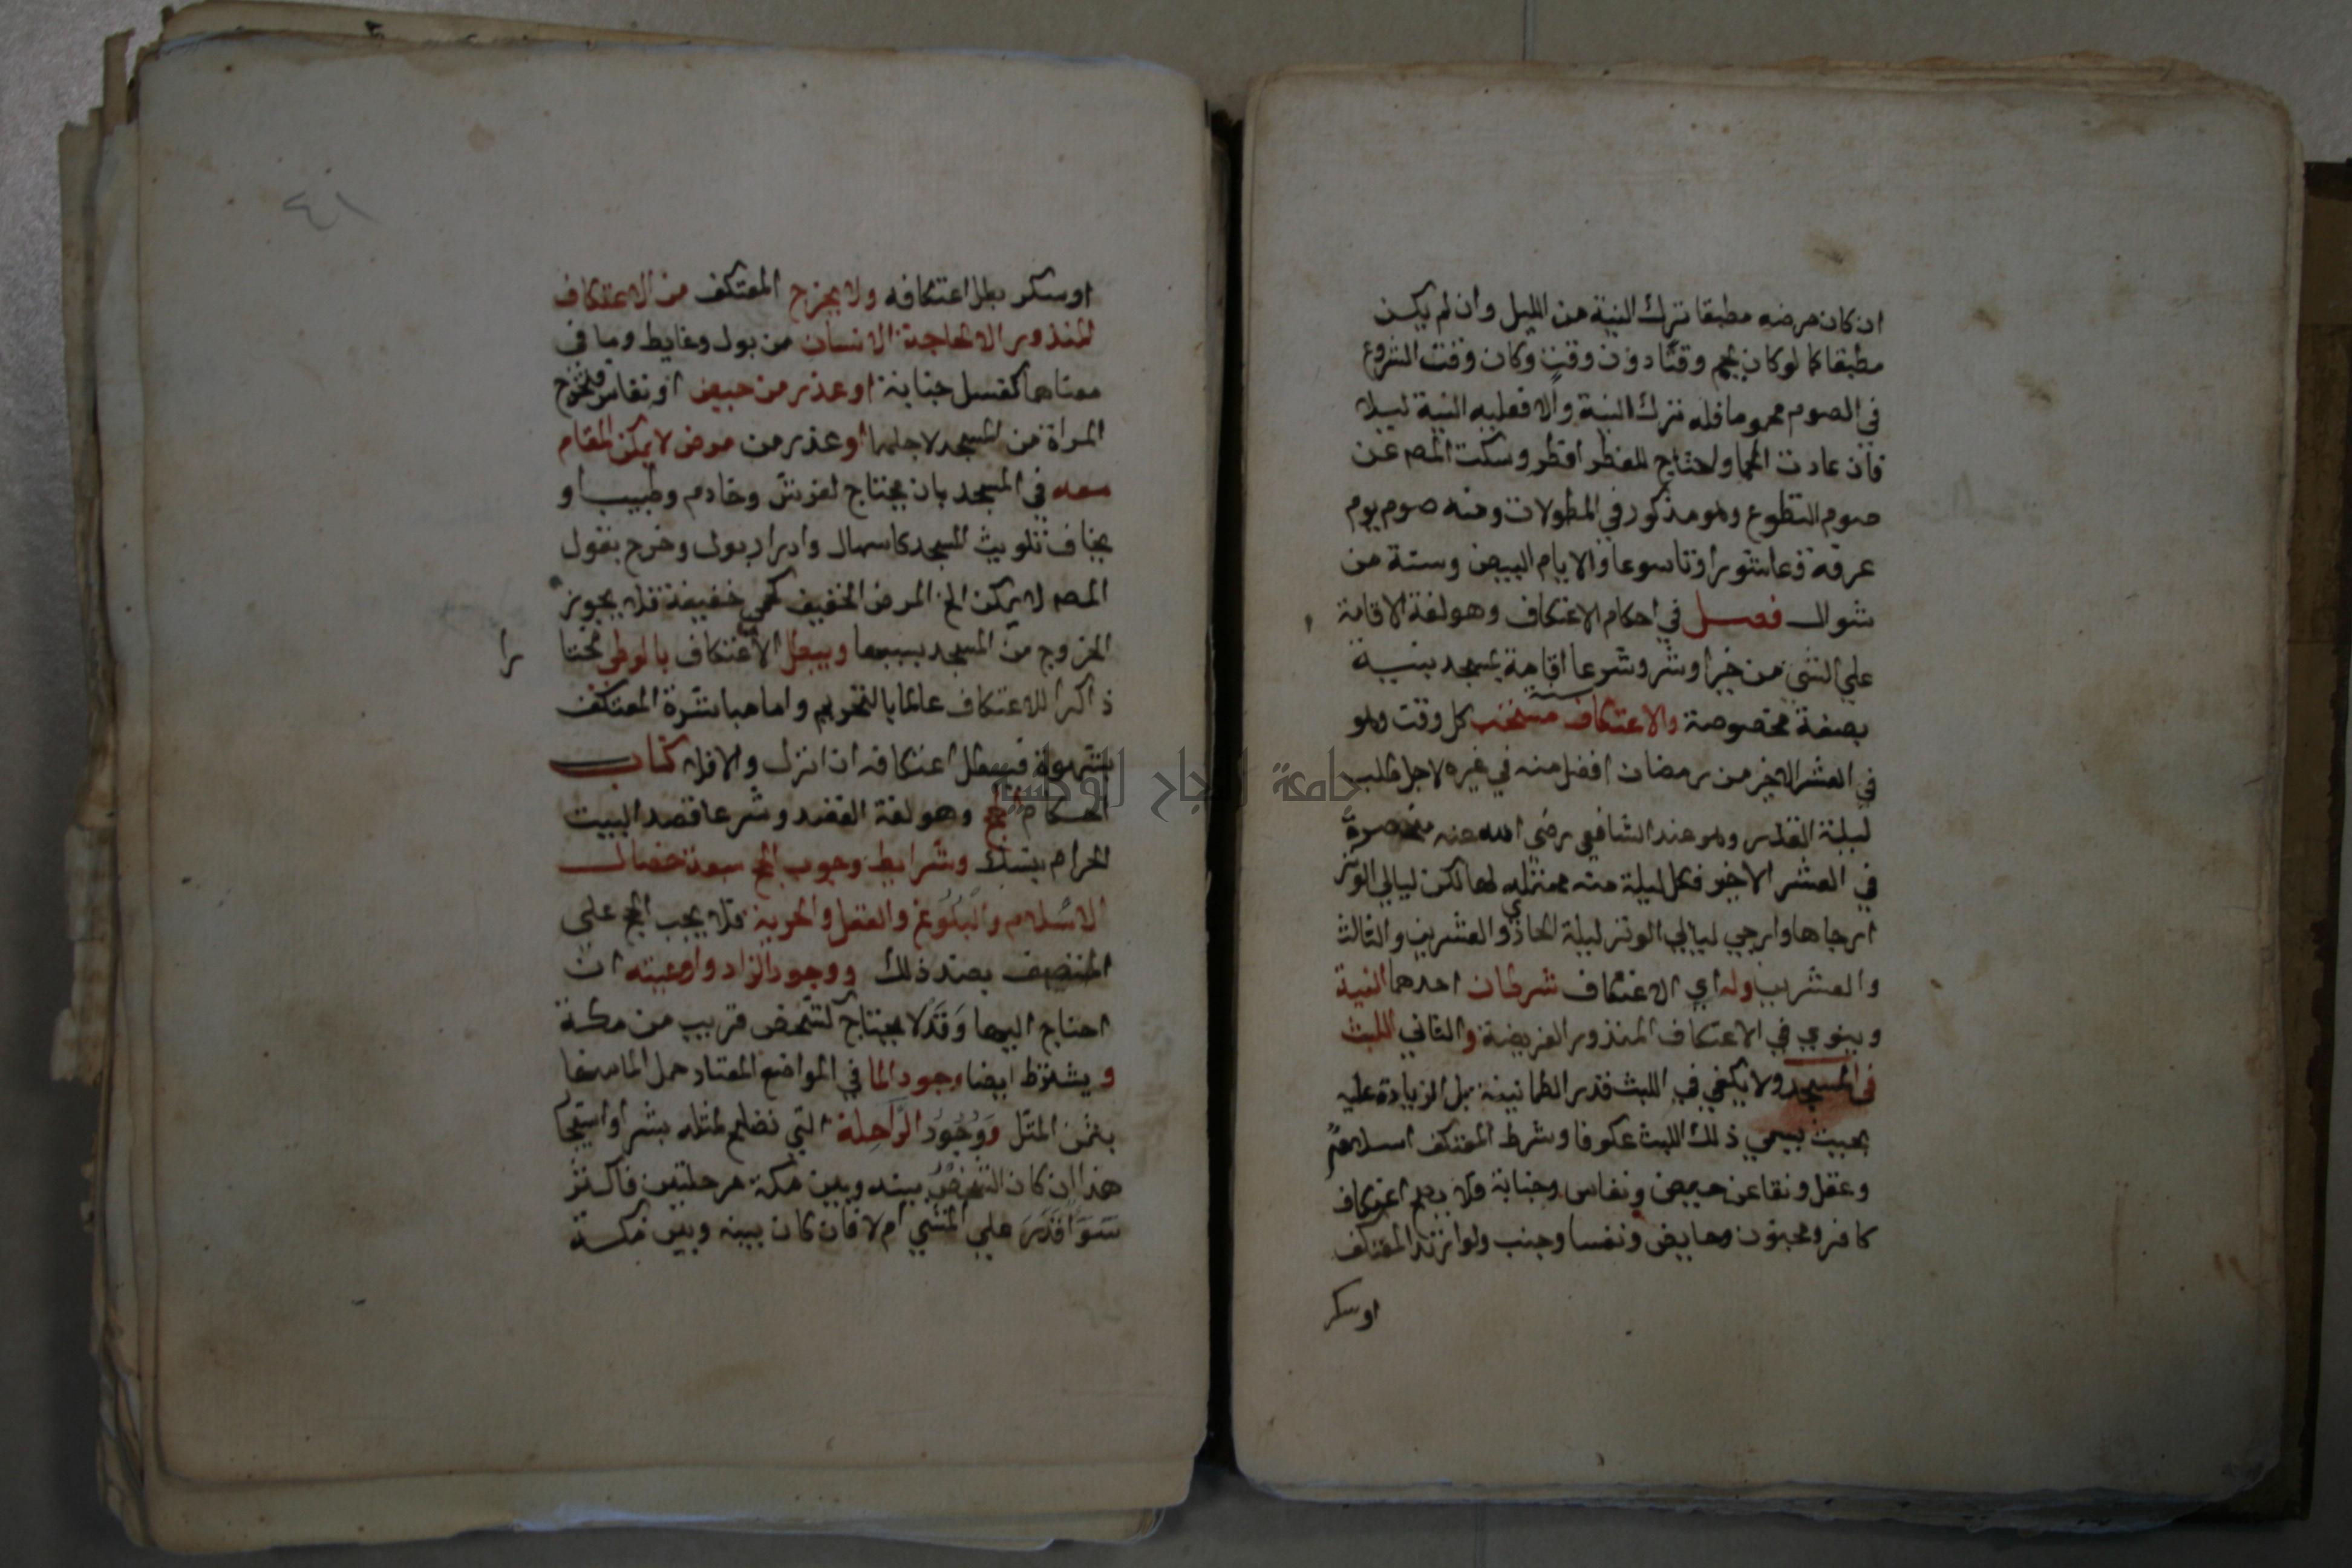 ان كان مرضه مطبقا ترك النية من الليل وان لم يكن
مطبقا كما لو كان يحم وقتا دون وقت وكان وقت الشروع
في الصوم محموما فله ترك النية والا فعليه النية ليلا
فان عادت الحما واحتاج للفطر افطر وسكت المصـ عن
صوم التطوع وهو مذكور في المطولات ومنه صوم يوم
عرفة وعاشورا وتاسوعا والايام البيض وستة من
شوال فصل في احكام الاعتكاف وهو لغة الاقامة
علي الشي من خير او شر وشرعا اقامة بمسجد بنية
بصفة مخصوصة والاعتكاف سنة مستحب كل وقت وهو
في العشر الاخير من رمضان افضل منه في غيره لاجل طلب
ليلة القدر وهو عند الشافعي رضي الله عنه منحصرة
في العشر الاخير فكل ليلة منه محتملة لها لكن ليالي الوتر
ارجاها وارجي ليالي الوتر ليلة الحادي والعشرين والثالث
والعشرين وله اي الاعتكاف شرطان احدهما النية
وينوي في الاعتكاف المنذور الفريضة والثاني اللبث
في المسجد ولا يكفي في اللبث قدر الطمانينة بل الزيادة عليه
بحيث يسمي ذلك اللبث عكوفا وشرط المعتكف اسلام
وعقل ونقا عن حيض ونفاس وجنابة فلا يصح اعتكاف
كافر ومجنون وحايض ونفسا وجنب ولو ارتد المعتكف
او سكر
٤١
او سكر بطل اعتكافه ولا يخرج المعتكف من الاعتكاف
المنذور الا لحاجة الانسان من بول وغايط وما في
معناها كغسل جنابة او عذر من حيض او نفاس فتخرج
المراة من المسجد لاجلهما او عذر من مرض لا يمكن المقام
معه في المسجد بان يحتاج لفرش وخادم وطبيب او
يخاف تلويث المسجد كاسهال وادرار بول وخرج بقول
المصـ لا يمكن الخ المرض الخفيف كحمي خفيفة فلا يجوز
الخروج من المسجد بسببها ويبطل الاعتكاف بالوطي مختا
را
ذاكرا للاعتكاف عالما بالتحريم واما مباشرة المعتكف
بشهوة فيبطل اعتكافه ان انزل والا فلا كتاب
احكام الحج وهو لغة القصد وشرعا قصد البيت
الحرام بنسك وشرايط وجوب الحج سبعة خصال
الاسلام والبلوغ والعقل والحرية فلا يجب الحج علي
المتصف بضد ذلك ووجود الزاد واوعيته ان
احتاج اليها وقد لا يحتاج كشخص قريب من مكة
ويشترط ايضا وجود الما في المواضع المعتاد حمل الما منها
بثمن المثل ووجود الراحلة التي تصلح لمثله بشرا او استيجا
هذا ان كان الشخص بينه وبين مكة مرحلتين فاكثر
سوا قدر علي المشي ام لا فان كان بينه وبين مكة
جامعة النجاح الوطنية